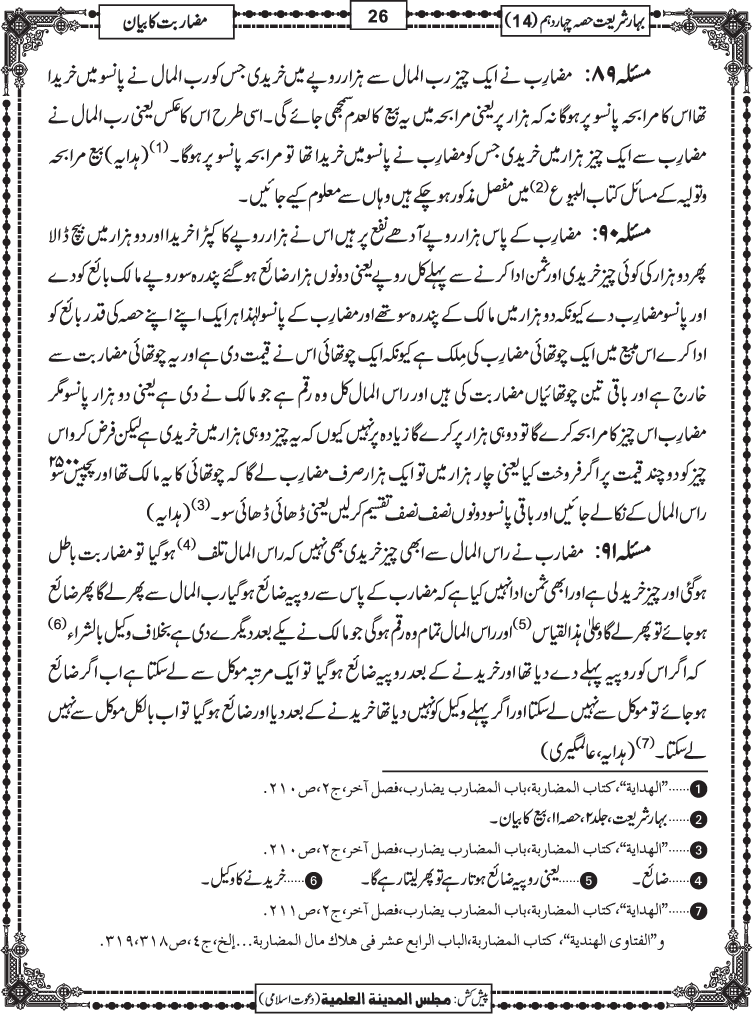 بہارِ شریعت حصہ چہاردہم (14)
26
مضاربت کا بیان
مسئلہ ۸۹: مضارِب نے ایک چیز رب المال سے ہزار روپے میں خریدی جس کو رب المال نے پانسو میں خریدا
تھا اس کا مرابحہ پانسو پر ہوگا نہ کہ ہزار پر یعنی مرابحہ میں یہ بیع کالعدم سمجھی جائے گی۔ اسی طرح اس کا عکس یعنی رب المال نے
مضارِب سے ایک چیز ہزار میں خریدی جس کو مضارِب نے پانسو میں خریدا تھا تو مرابحہ پانسو پر ہوگا۔(1) (ہدایہ) بیع مرابحہ
و تولیہ کے مسائل کتاب البیوع(2) میں مفصل مذکور ہو چکے ہیں وہاں سے معلوم کیے جائیں۔
مسئلہ ۹۰: مضارِب کے پاس ہزار روپے آدھے نفع پر ہیں اس نے ہزار روپے کا کپڑا خریدا اور دو ہزار میں بیچ ڈالا
پھر دو ہزار کی کوئی چیز خریدی اور ثمن ادا کرنے سے پہلے کل روپے یعنی دونوں ہزار ضائع ہوگئے پندرہ سو روپے مالک بائع کو دے
اور پانسو مضارِب دے کیونکہ دو ہزار میں مالک کے پندرہ سو تھے اور مضارِب کے پانسو لہٰذا ہر ایک اپنے اپنے حصہ کی قدر بائع کو
ادا کرے اس مبیع میں ایک چوتھائی مضارِب کی مِلک ہے کیونکہ ایک چوتھائی اس نے قیمت دی ہے اور یہ چوتھائی مضاربت سے
خارج ہے اور باقی تین چوتھائیاں مضاربت کی ہیں اور راس المال کل وہ رقم ہے جو مالک نے دی ہے یعنی دو ہزار پانسو مگر
مضارِب اس چیز کا مرابحہ کرے گا تو دو ہی ہزار پر کرے گا زیادہ پر نہیں کیوں کہ یہ چیز دو ہی ہزار میں خریدی ہے لیکن فرض کرو اس
چیز کو دو چند قیمت پر اگر فروخت کیا یعنی چار ہزار میں تو ایک ہزار صرف مضارِب لے گا کہ چوتھائی کا یہ مالک تھا اور پچیس سو ۲۵۰۰
راس المال کے نکالے جائیں اور باقی پانسو دونوں نصف نصف تقسیم کرلیں یعنی ڈھائی ڈھائی سو۔(3) (ہدایہ)
مسئلہ ۹۱: مضارِب نے راس المال سے ابھی چیز خریدی بھی نہیں کہ راس المال تلف(4) ہوگیا تو مضاربت باطل
ہوگئی اور چیز خرید لی ہے اور ابھی ثمن ادا نہیں کیا ہے کہ مضارِب کے پاس سے روپیہ ضائع ہوگیا رب المال سے پھر لے گا پھر ضائع
ہو جائے تو پھر لے گا وعلیٰ ھذا القیاس(5) اور راس المال تمام وہ رقم ہوگی جو مالک نے یکے بعد دیگرے دی ہے بخلاف وکیل بالشراء(6)
کہ اگر اس کو روپیہ پہلے دے دیا تھا اور خریدنے کے بعد روپیہ ضائع ہوگیا تو ایک مرتبہ موکل سے لے سکتا ہے اب اگر ضائع
ہو جائے تو موکل سے نہیں لے سکتا اور اگر پہلے وکیل کو نہیں دیا تھا خریدنے کے بعد دیا اور ضائع ہوگیا تو اب بالکل موکل سے نہیں
لے سکتا۔(7) (ہدایہ، عالمگیری)
1......"الھدایة"، کتاب المضاربة، باب المضارب یضارب، فصل آخر، ج۲، ص۲۱۰.
2......بہارِ شریعت، جلد ۲، حصہ ۱۱، بیع کا بیان۔
3......"الھدایة"، کتاب المضاربة، باب المضارب یضارب، فصل آخر، ج۲، ص۲۱۰.
4......ضائع۔ 5......یعنی روپیہ ضائع ہوتا رہے تو پھر لیتا رہے گا۔ 6......خریدنے کا وکیل۔
7......"الھدایة"، کتاب المضاربة، باب المضارب یضارب، فصل آخر، ج۲، ص۲۱۱.
و"الفتاوی الھندیة"، کتاب المضاربة، الباب الرابع عشر فی ھلاك مال المضاربة...إلخ، ج٤، ص۳۱۸،۳۱۹.
پیش کش: مجلس المدینة العلمیة (دعوتِ اسلامی)